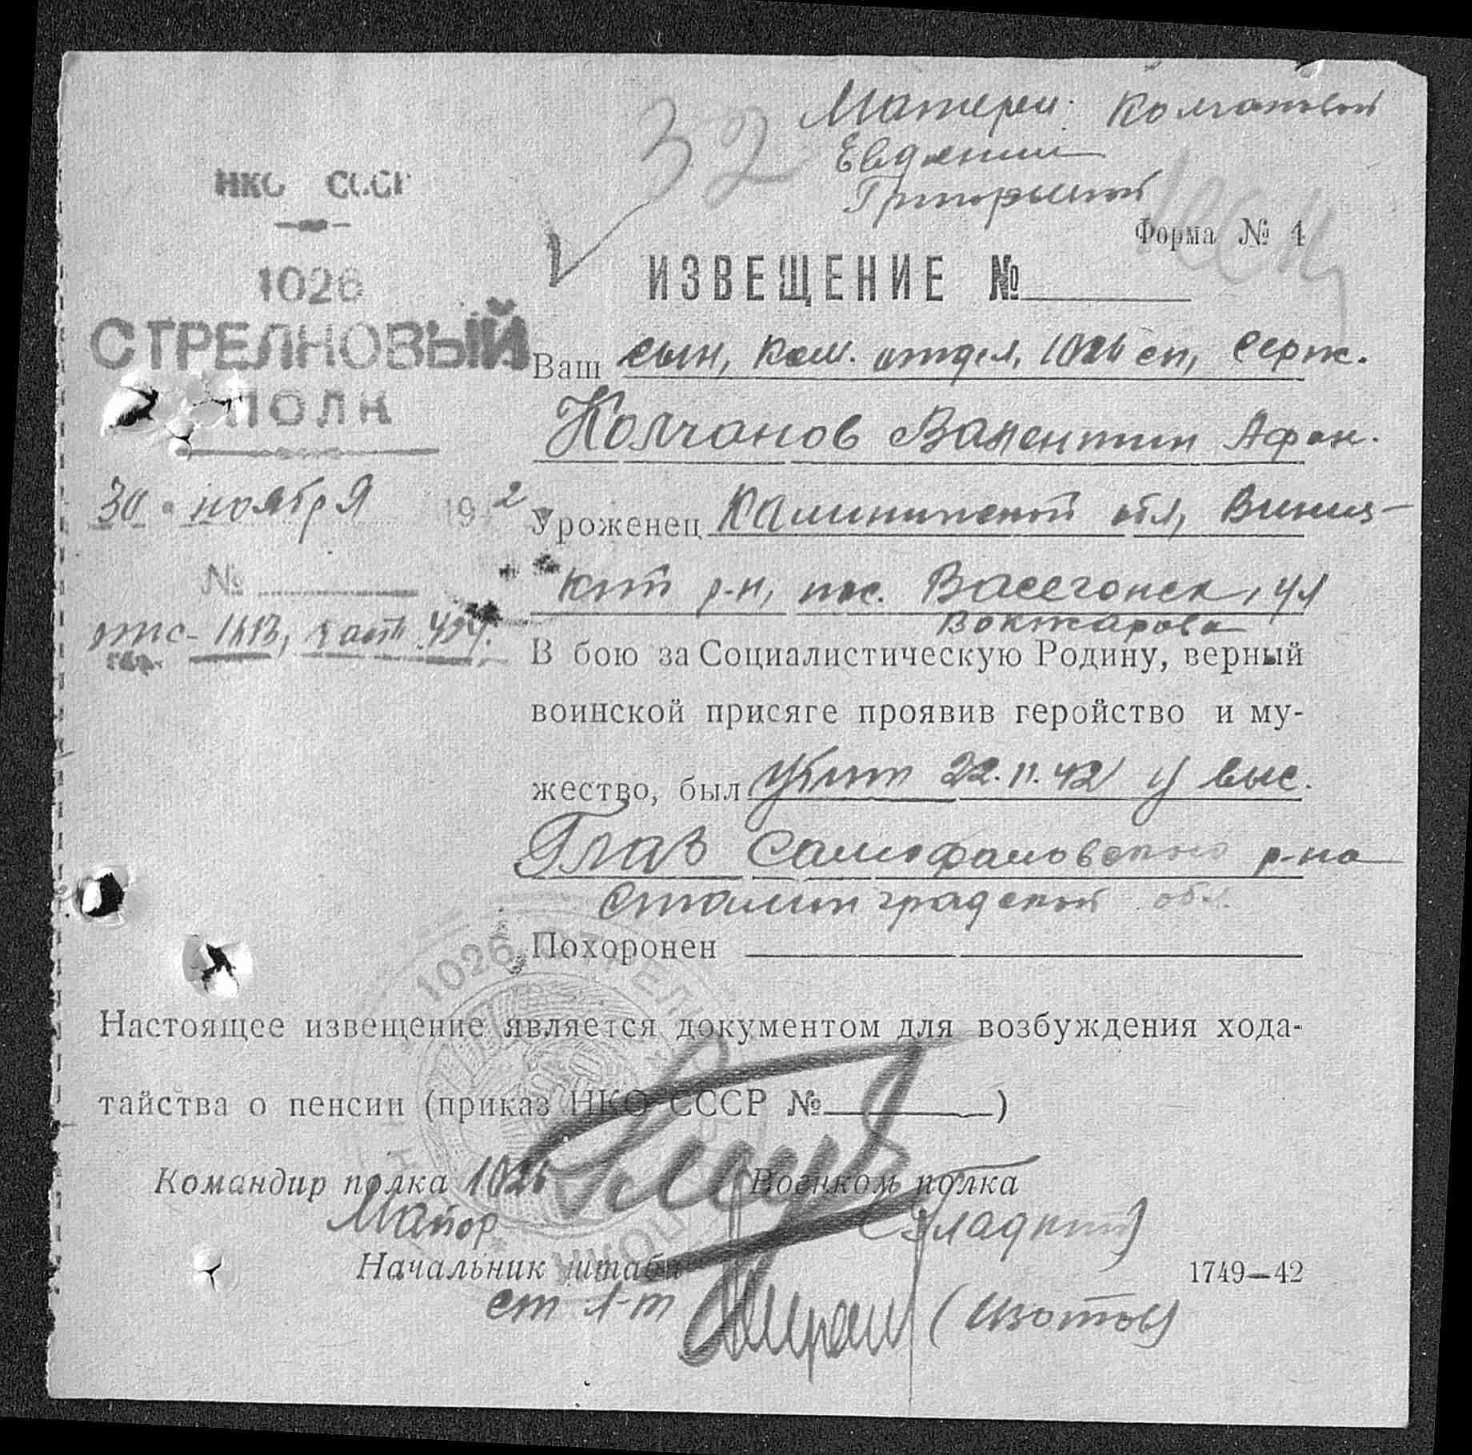 32
Матери Колчановой
Евдокии
Григорьевной
НКО СССР
1026
СТРЕЛКОВЫЙ
ПОЛК
30 ноября 1942
№
ппс 1413, часть 424.
Форма № 4
ИЗВЕЩЕНИЕ №
Ваш сын, ком. отдел. 1026 сп, серж.
Колчанов Валентин Афан.
Уроженец Калининской обл,
р-н, пос. Васегонск, ул
В бою за Социалистическую Родину, верный
воинской присяге проявив геройство и му-
жество, был убит 22.11.42 у выс.
Глав Самофаловского р-на
Сталинградской обл.
Похоронен
Настоящее извещение является документом для возбуждения хода-
тайства о пенсии (приказ НКО СССР № )
Командир полка 1026 Военком полка
Майор (Гладкий)
Начальник штаба 1749—42
ст л-т (Изотов)